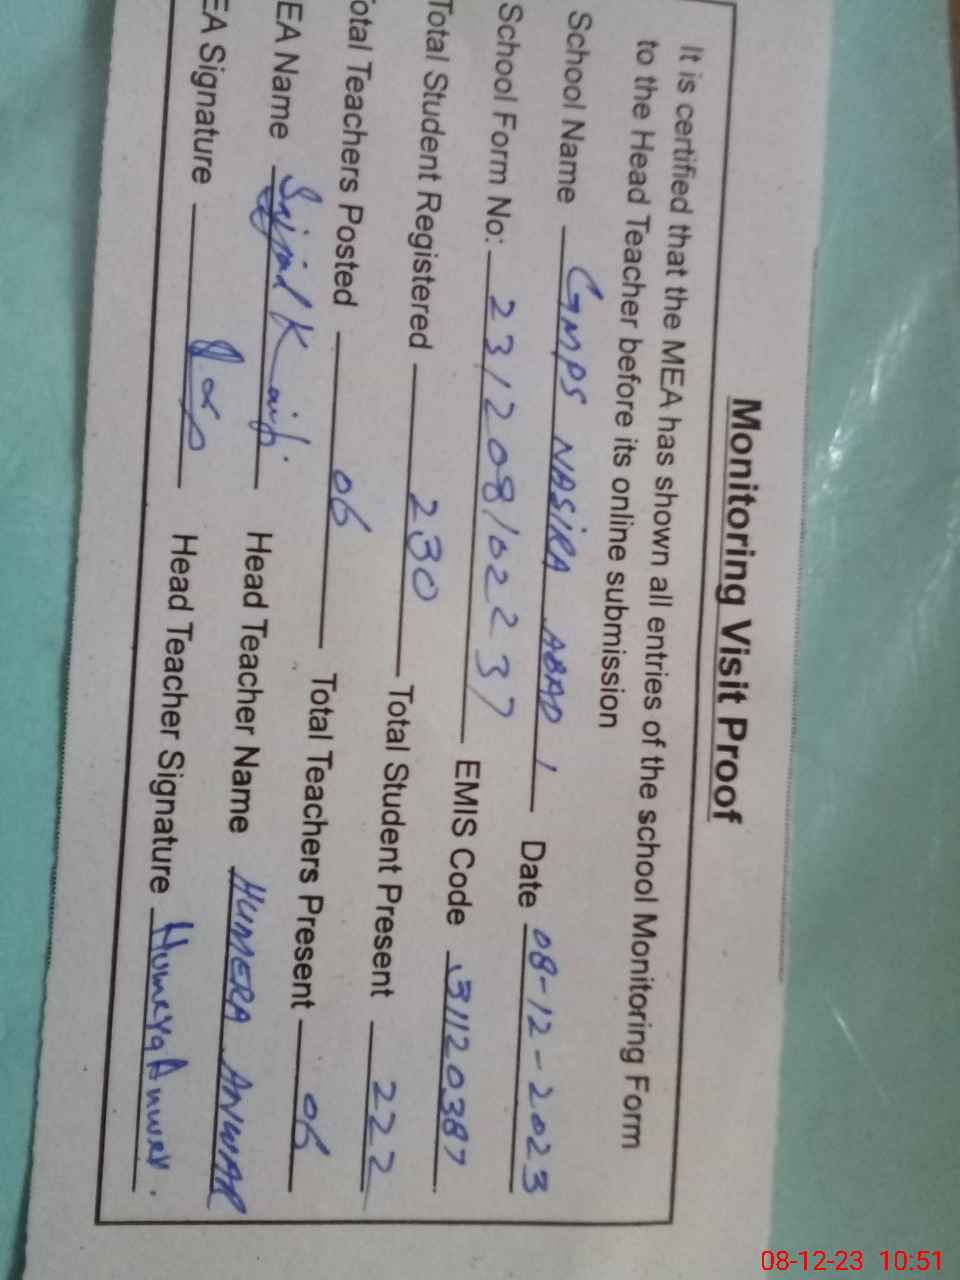 Monitoring Visit Proof
It is certified that the MEA has shown all entries of the school Monitoring Form
to the Head Teacher before its online submission
School Name GMPS NASIRA ABAD 1 Date 08-12-2023
School Form No: 23/208/02237 EMIS Code 31120387
Total Student Registered 230 Total Student Present 222
otal Teachers Posted 06 Total Teachers Present 06
EA Name Head Teacher Name HUMERA ANWAR
EA Signature Head Teacher Signature Humera Anwer.
08-12-23 10:51